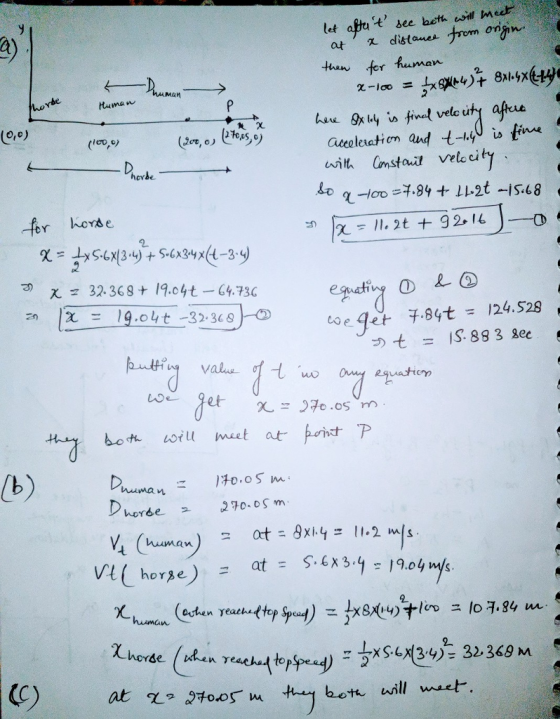 (a)
y
let after 't' sec both will meet
at x distance from origin.
then for human
x-100 = 1/2 x 8x(1.4)² + 8x1.4x(t-1.4)
here 8x1.4 is final velocity after
acceleration and t-1.4 is time
with constant velocity.
So x-100 = 7.84 + 11.2t - 15.68
⇒ x = 11.2t + 92.16 — ①
D human
horse
Human
P
x
(0,0)
(100,0)
(200,0)
(270.05,0)
D horse
for horse
x = 1/2 x 5.6x(3.4)² + 5.6x3.4x(t-3.4)
⇒ x = 32.368 + 19.04t - 64.736
⇒ x = 19.04t - 32.368 — ②
equating ① & ②
we get 7.84t = 124.528
⇒ t = 15.883 sec
putting value of t in any equation
we get x = 270.05 m.
they both will meet at point P
(b)
Dhuman = 170.05 m.
Dhorse = 270.05 m
Vt (human) = at = 8x1.4 = 11.2 m/s.
Vt (horse) = at = 5.6x3.4 = 19.04 m/s.
xhuman (when reached top speed) = 1/2 x 8x(1.4)² + 100 = 107.84 m
xhorse (when reached top speed) = 1/2 x 5.6x(3.4)² = 32.368 m
(c) at x = 270.05 m they both will meet.